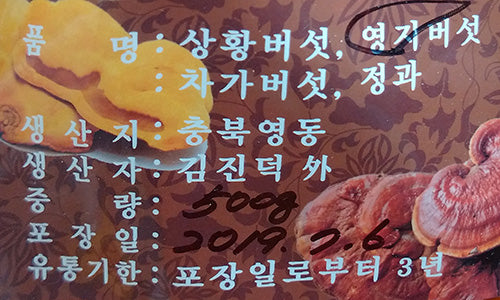 품 명 : 상황버섯, 영지버섯
: 차가버섯, 정과
생 산 지 : 충북영동
생 산 자 : 김진덕 外
중 량 : 500g
포 장 일 : 2019. 7. 6
유통기한 : 포장일로부터 3년